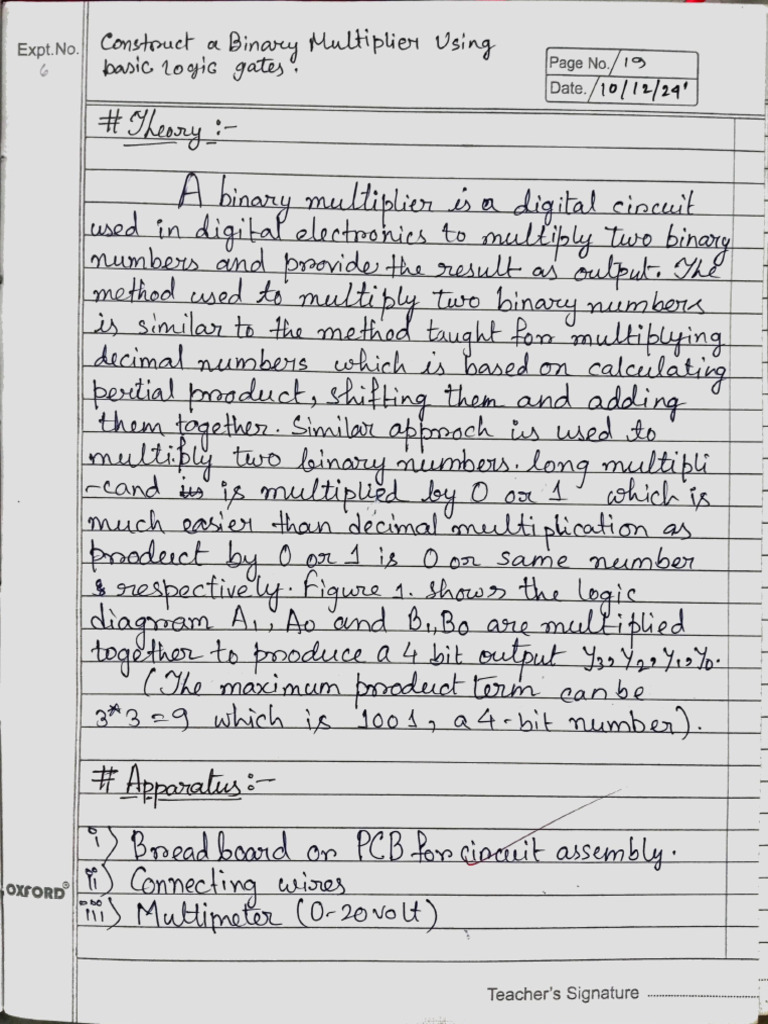 Expt.No. 6
Construct a Binary Multiplier Using
basic logic gates.
Page No. 19
Date. 10/12/24'
# Theory :-
A binary multiplier is a digital circuit
used in digital electronics to multiply two binary
numbers and provide the result as output. The
method used to multiply two binary numbers
is similar to the method taught for multiplying
decimal numbers which is based on calculating
pertial product, shifting them and adding
them together. Similar approch is used to
multiply two binary numbers. long multipli
-cand is is multiplied by 0 or 1 which is
much easier than decimal multiplication as
product by 0 or 1 is 0 or same number
respectively. Figure 1. shows the logic
diagram A1, A0 and B1, B0 are multiplied
together to produce a 4 bit output Y3, Y2, Y1, Y0.
(The maximum product term can be
3*3=9 which is 1001, a 4-bit number).
# Apparatus :-
i) Bread board or PCB for circuit assembly.
ii) Connecting wires
iii) Multimeter (0-20 volt)
OXFORD®
Teacher's Signature